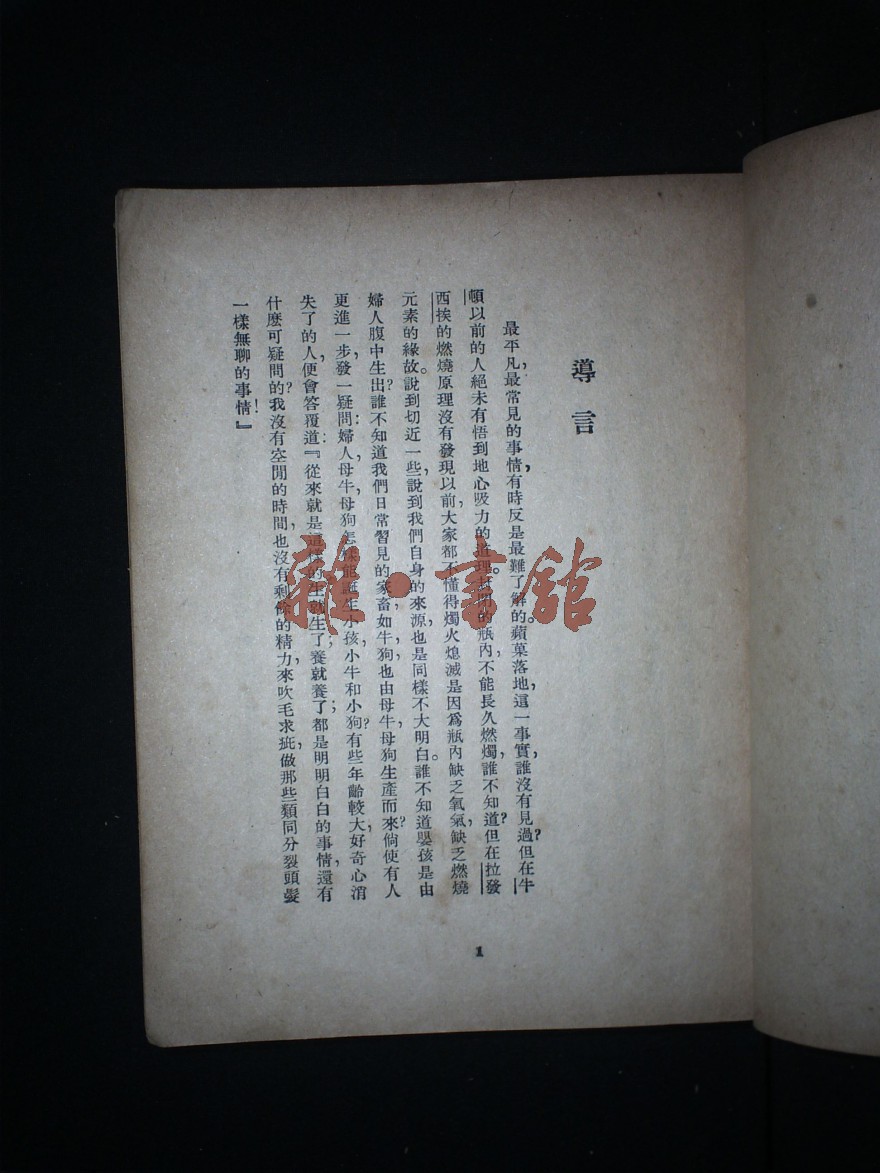 導言
最平凡，最常見的事情，有時反是最難了解的。蘋菓落地，這一事實，誰沒有見過？但在牛
頓以前的人絕未有悟到地心吸力的道理。封閉的瓶內，不能長久燃燭，誰不知道？但在拉發
西挨的燃燒原理沒有發現以前，大家都不懂得燭火熄滅是因為瓶內缺乏氧氣，缺乏燃燒
元素的緣故。說到切近一些，說到我們自身的來源，也是同樣不大明白。誰不知道嬰孩是由
婦人腹中生出？誰不知道我們日常習見的家畜，如牛，狗，也由母牛母狗生產而來？倘使有人
更進一步，發一疑問：婦人，母牛，母狗怎樣能誕生小孩，小牛和小狗？有些年齡較大，好奇心消
失了的人，便會答覆道：『從來就是這樣的，生就生了；養就養了；都是明明白白的事情，還有
什麼可疑問的？我沒有空閒的時間，也沒有剩餘的精力來吹毛求疵，做那些類同分裂頭髮
一樣無聊的事情！』
1
雜·書館